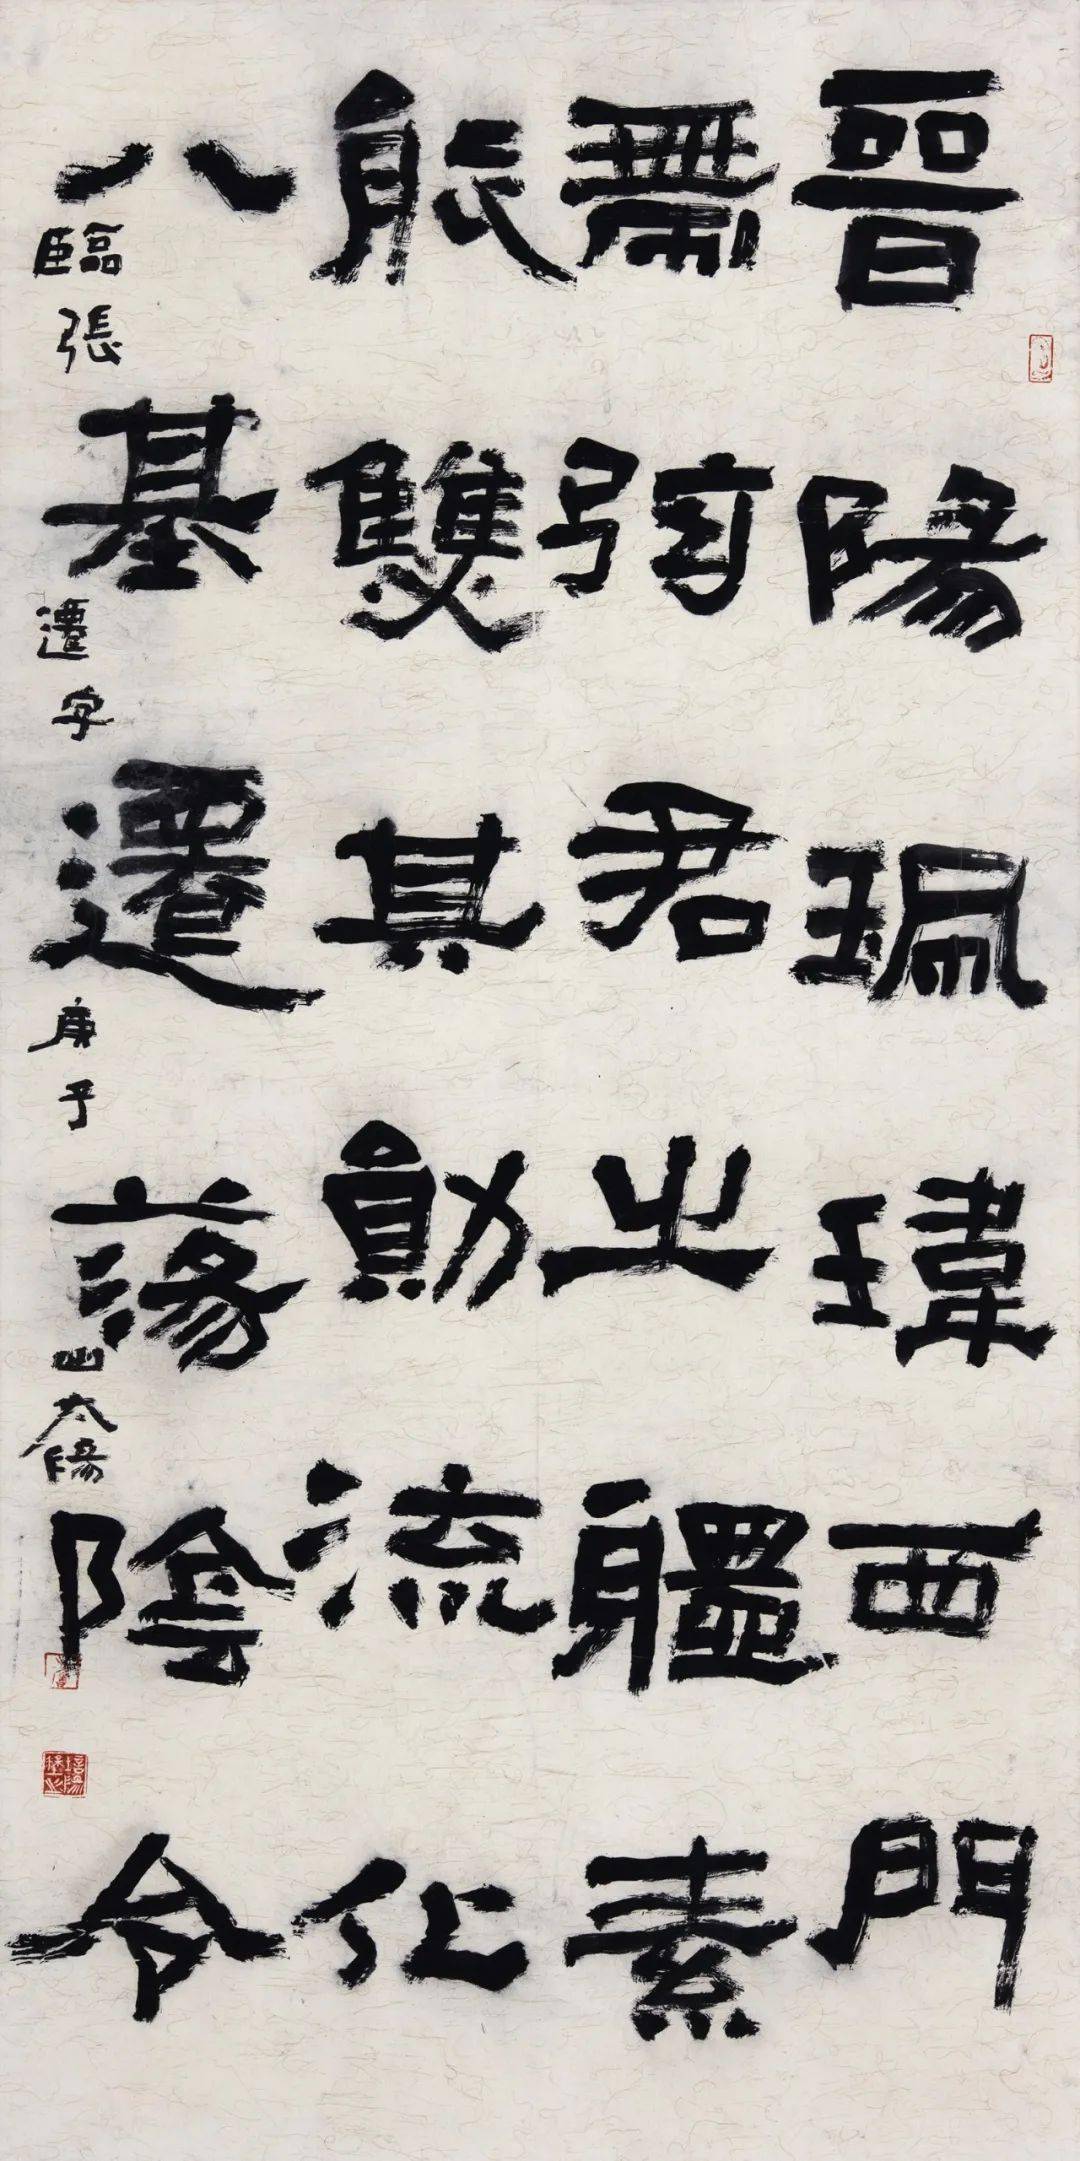 晉陽珮瑋西門
帶弦君之軆素
能雙其勛流化
八基遷蕩陰令
臨張遷字庚子山太陽